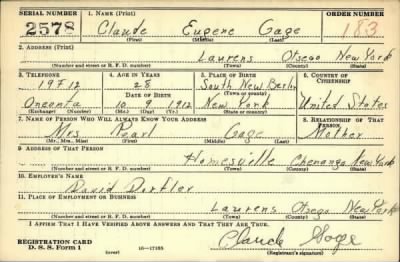 SERIAL NUMBER 1. NAME (Print) ORDER NUMBER
2578 Claude Eugene Gage 183
(First) (Middle) (Last)
2. ADDRESS (Print)
Laurens Otsego New York
(Number and street or R. F. D. number) (Town) (County) (State)
3. TELEPHONE 4. AGE IN YEARS 5. PLACE OF BIRTH 6. COUNTRY OF CITIZENSHIP
19F12 28 South New Berlin
DATE OF BIRTH (Town or county)
Oneonta 10 9 1912 New York United States
(Exchange) (Number) (Mo.) (Day) (Yr.) (State or country)
7. NAME OF PERSON WHO WILL ALWAYS KNOW YOUR ADDRESS 8. RELATIONSHIP OF THAT PERSON
Mrs Pearl Gage Mother
(Mr., Mrs., Miss) (First) (Middle) (Last)
9. ADDRESS OF THAT PERSON
Homesville Chenango New York
(Number and street or R. F. D. number) (Town) (County) (State)
10. EMPLOYER'S NAME
David Dorfler
11. PLACE OF EMPLOYMENT OR BUSINESS
Laurens Otsego New York
(Number and street or R. F. D. number) (Town) (County) (State)
I AFFIRM THAT I HAVE VERIFIED ABOVE ANSWERS AND THAT THEY ARE TRUE.
REGISTRATION CARD Claude Gage
D. S. S. Form 1 (over) 16—17105 (Registrant's signature)